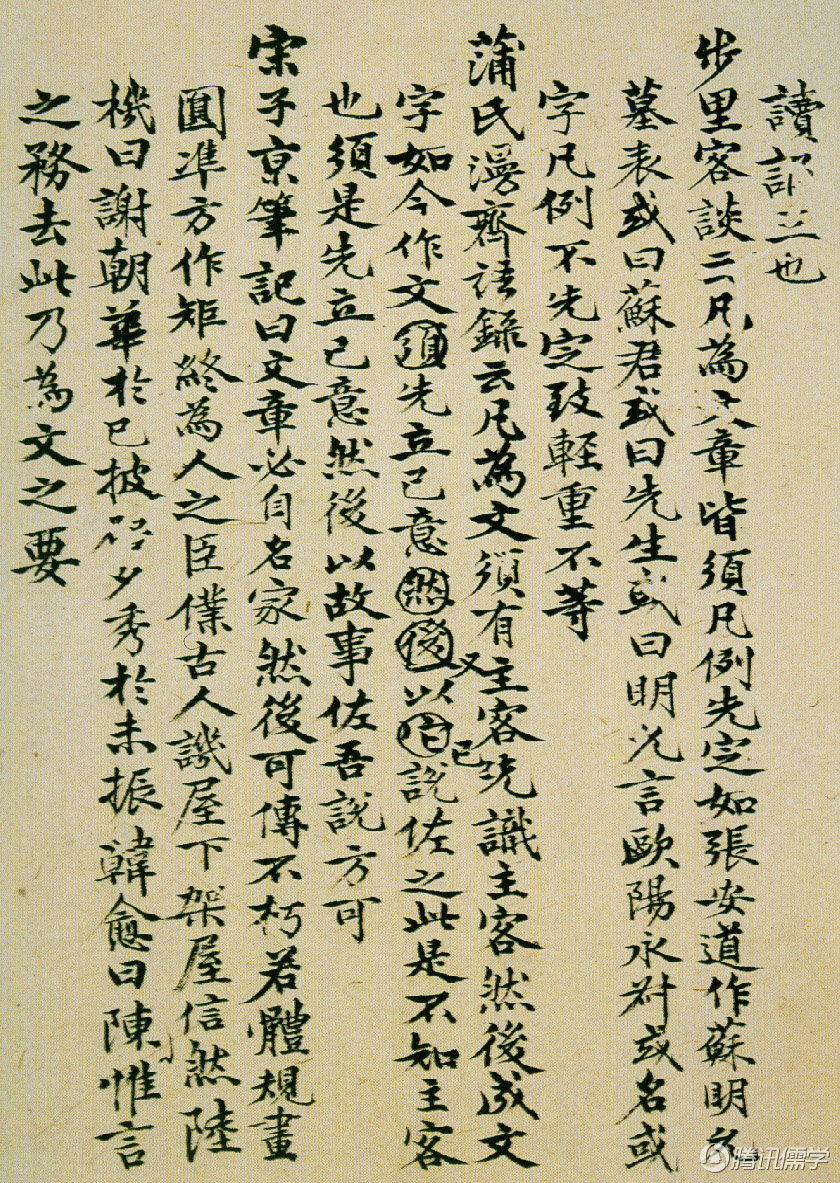 讀訖並也
步里客談云凡為文章皆須凡例先定如張安道作蘇明允
墓表或曰蘇君或曰先生或曰明允言歐陽永叔或名或
字凡例不先定致輕重不等
蒲氏漫齋語錄云凡為文須有主客先識主客然後成文
字如今作文須先立己意然後又以己說佐之此是不知主客
也須是先立己意然後以故事佐吾說方可
宋子京筆記曰文章必自名家然後可傳不朽若體規畫
圓準方作矩終為人之臣僕古人譏屋下架屋信然陸
機曰謝朝華於已披啓夕秀於未振韓愈曰陳惟言
之務去此乃為文之要
腾讯儒学